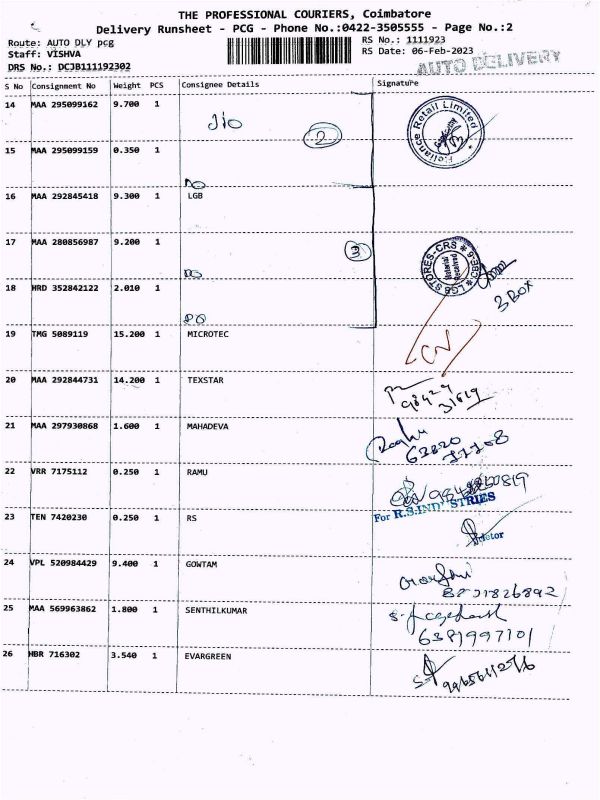 THE PROFESSIONAL COURIERS, Coimbatore
Delivery Runsheet - PCG - Phone No.:0422-3505555 - Page No.:2
Route: AUTO DLY pcg RS No.: 1111923
Staff: VISHVA RS Date: 06-Feb-2023
DRS No.: DCJB111192302 AUTO DELIVERY
S No Consignment No Weight PCS Consignee Details Signature
14 MAA 295099162 9.700 1 JIO Reliance Retail Limited
2
15 MAA 295099159 0.350 1 DO
16 MAA 292845418 9.300 1 LGB
17 MAA 280856987 9.200 1 DO LGB STORES-CRS * CBE-6 *
Material Received
3 3 BOX
18 HRD 352842122 2.010 1 DO
19 TMG 5089119 15.200 1 MICROTEC
20 MAA 292844731 14.200 1 TEXSTAR 98424
31619
21 MAA 297930868 1.600 1 MAHADEVA Raghu
62820
22 VRR 7175112 0.250 1 RAMU
For R.S.INDUSTRIES
23 TEN 7420230 0.250 1 RS
24 VPL 520984429 9.400 1 GOWTAM
25 MAA 569963862 1.800 1 SENTHILKUMAR
6381997101
26 HBR 716302 3.540 1 EVARGREEN